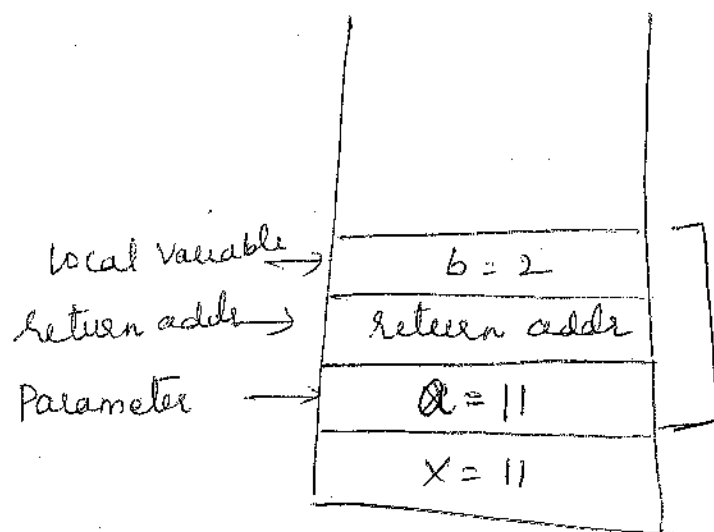 Local Variable → b = 2
return addr → return addr
Parameter → a = 11
X = 11